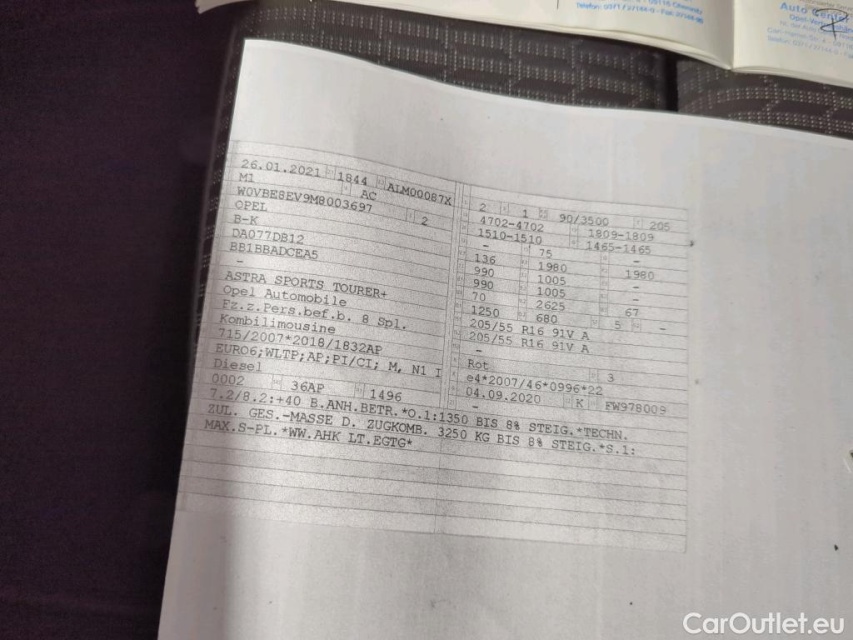 Auto Center
26.01.2021 1844 ALM00087X
M1 AC
W0VBE8EV9M8003697 2
OPEL
B-K
DA077DB12
BB1BBADCEA5
-
ASTRA SPORTS TOURER+
Opel Automobile
Fz.z.Pers.bef.b. 8 Spl.
Kombilimousine
715/2007*2018/1832AP
EURO6;WLTP;AP;PI/CI; M, N1 I
Diesel
0002 36AP 1496
2 1 90/3500 205
4702-4702 1809-1809
1510-1510 1465-1465
- 75 -
136 1980 1980
990 1005 -
990 1005 -
70 2625 67
1250 680 5 -
205/55 R16 91V A
205/55 R16 91V A
-
Rot 3
e4*2007/46*0996*22
04.09.2020 K FW978009
-
7.2/8.2:+40 B.ANH.BETR.*O.1:1350 BIS 8% STEIG.*TECHN.
ZUL. GES.-MASSE D. ZUGKOMB. 3250 KG BIS 8% STEIG.*S.1:
MAX.S-PL.*WW.AHK LT.EGTG*
CarOutlet.eu